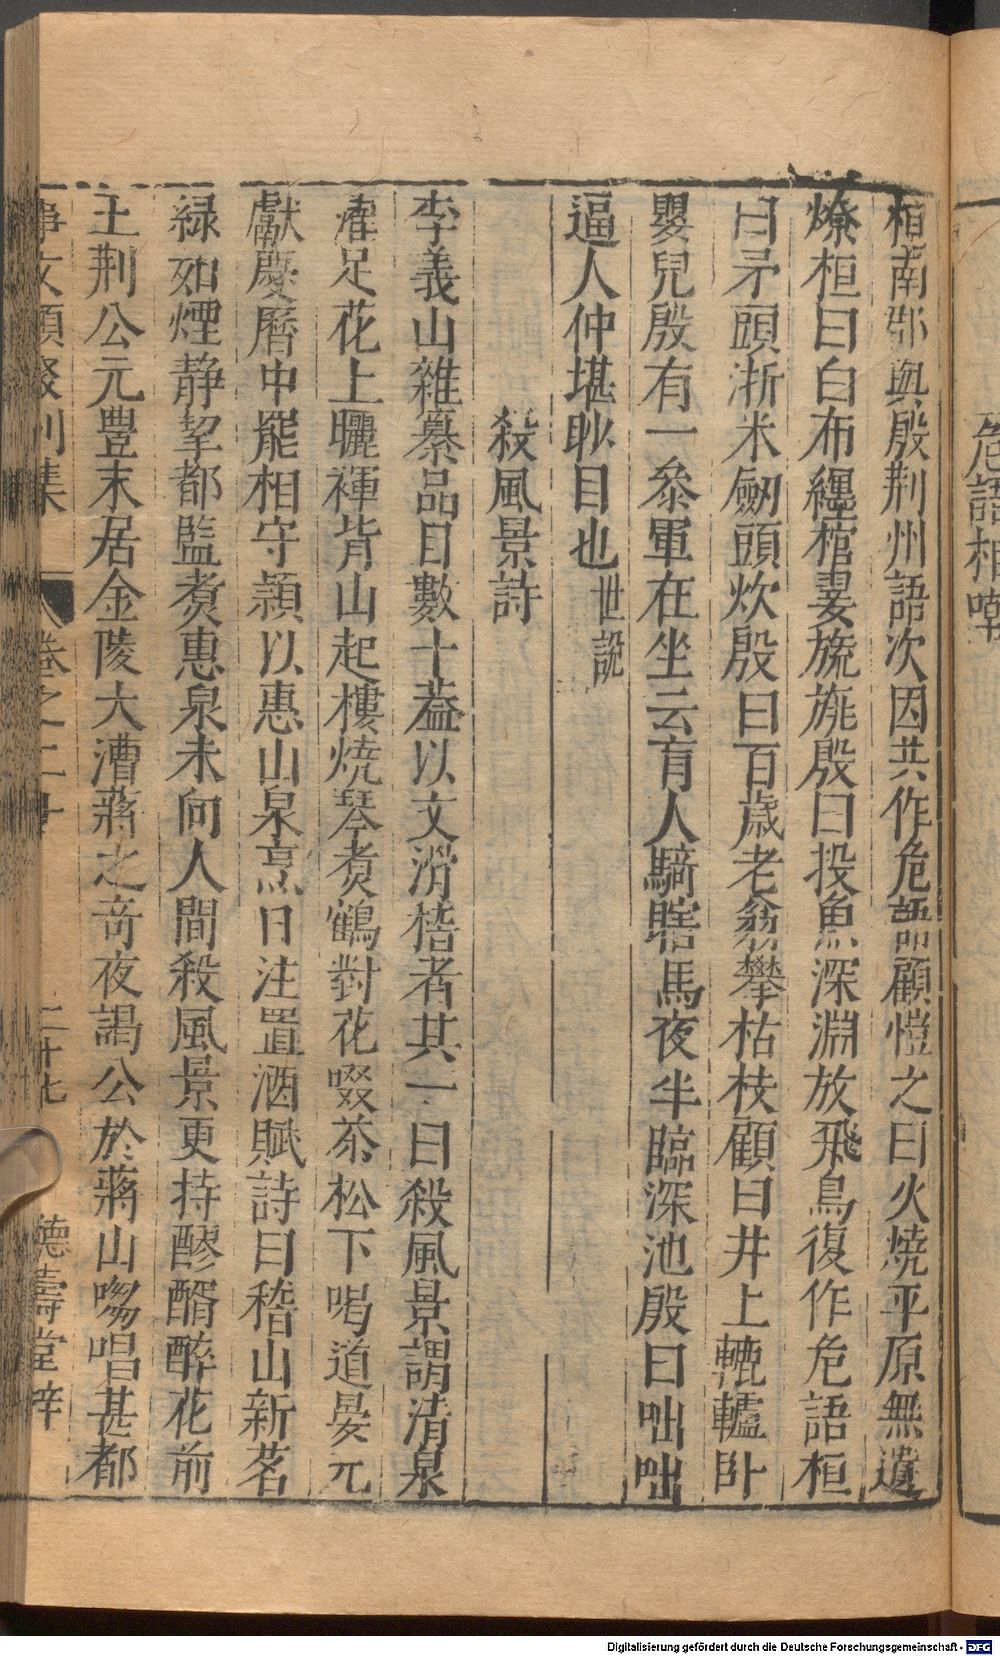 危語相嘲
桓南郡與殷荆州語次因共作危語顧愷之曰火燒平原無遺
燎桓曰白布纏棺翣旒旐殷曰投魚深淵放飛鳥復作危語桓
曰矛頭淅米劒頭炊殷曰百歲老翁攀枯枝顧曰井上轆轤卧
嬰兒殷有一叅軍在坐云盲人騎瞎馬夜半臨深池殷曰咄咄
逼人仲堪眇目也世說
殺風景詩
李義山雜纂品目數十葢以文滑稽者其一曰殺風景謂清泉
濯足花上曬褌背山起樓燒琴煑鶴對花啜茶松下喝道晏元
獻慶曆中罷相守潁以惠山泉烹日注置酒賦詩曰稽山新茗
緑如煙静挈都監煑惠泉未向人間殺風景更持醪醑醉花前
王荆公元豐末居金陵大漕蔣之竒夜謁公於蔣山唱甚都
事文類聚别集
卷之二十
二十七
德壽堂梓
Digitalisierung gefördert durch die Deutsche Forschungsgemeinschaft - DFG